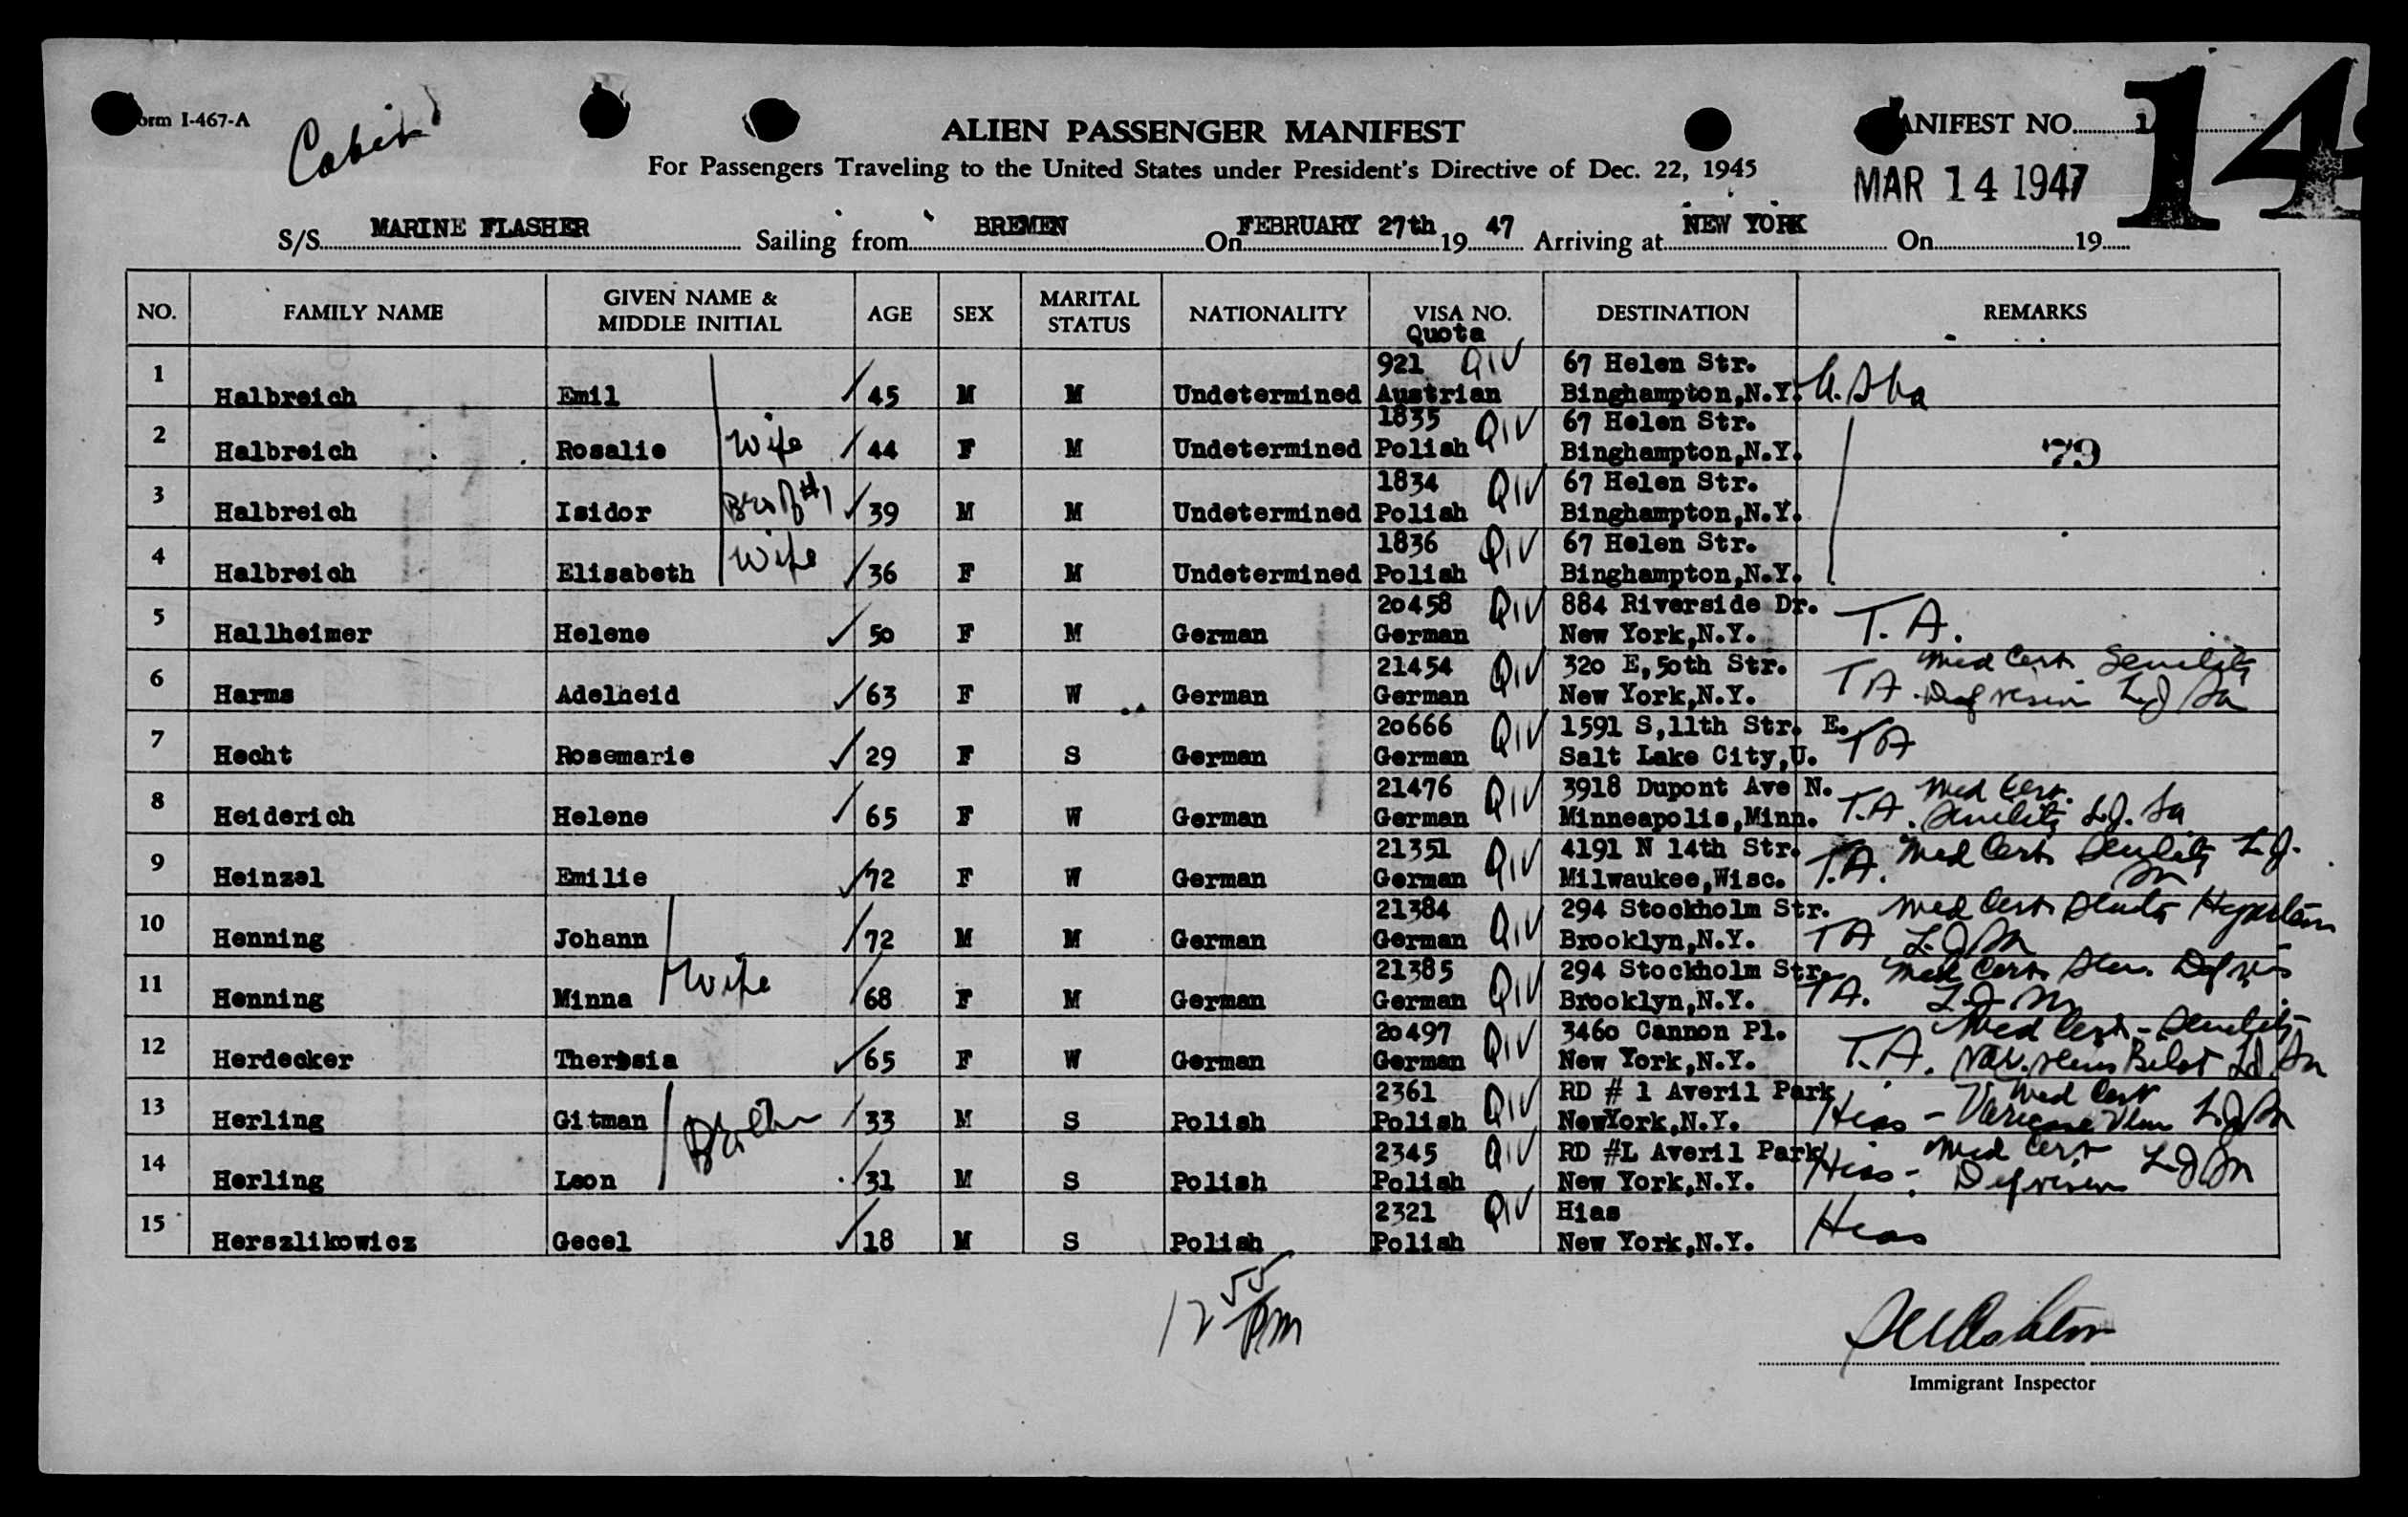 orm I-467-A
Cabin
ALIEN PASSENGER MANIFEST
ANIFEST NO. 1
14
For Passengers Traveling to the United States under President's Directive of Dec. 22, 1945
MAR 14 1947
S/S MARINE FLASHER Sailing from BREMEN On FEBRUARY 27th 19 47 Arriving at NEW YORK On 19
NO. FAMILY NAME GIVEN NAME & MIDDLE INITIAL AGE SEX MARITAL STATUS NATIONALITY VISA NO. Quota DESTINATION REMARKS
921 QIV 67 Helen Str.
1 Halbreich Emil 45 M M Undetermined Austrian Binghampton,N.Y.
1835 QIV 67 Helen Str.
2 Halbreich Rosalie Wife 44 F M Undetermined Polish Binghampton,N.Y. 79
1834 QIV 67 Helen Str.
3 Halbreich Isidor Bro of #1 39 M M Undetermined Polish Binghampton,N.Y.
1836 QIV 67 Helen Str.
4 Halbreich Elisabeth Wife 36 F M Undetermined Polish Binghampton,N.Y.
20458 QIV 884 Riverside Dr.
5 Hallheimer Helene 50 F M German German New York,N.Y. T.A.
21454 QIV 320 E,50th Str. Med Cert Senility
6 Harms Adelheid 63 F W German German New York,N.Y. TA
20666 QIV 1591 S,11th Str. E.
7 Hecht Rosemarie 29 F S German German Salt Lake City,U. TA
21476 QIV 3918 Dupont Ave N. Med Cert.
8 Heiderich Helene 65 F W German German Minneapolis,Minn. T.A. Senility
21351 QIV 4191 N 14th Str. Med Cert Senility
9 Heinzel Emilie 72 F W German German Milwaukee,Wisc. T.A.
21384 QIV 294 Stockholm Str. Med Cert
10 Henning Johann 72 M M German German Brooklyn,N.Y. TA
21385 QIV 294 Stockholm Str. Med Cert
11 Henning Minna Wife 68 F M German German Brooklyn,N.Y. TA.
20497 QIV 3460 Cannon Pl. Med Cert - Senility
12 Herdecker Theresia 65 F W German German New York,N.Y. T.A.
2361 QIV RD # 1 Averil Park Med Cert
13 Herling Gitman Brother 33 M S Polish Polish NewYork,N.Y. Hias - Varicose Vein
2345 QIV RD #L Averil Park Med Cert
14 Herling Leon 31 M S Polish Polish New York,N.Y. Hias -
2321 QIV Hias
15 Herszlikowicz Gecel 18 M S Polish Polish New York,N.Y. Hias
12 55 PM
Immigrant Inspector